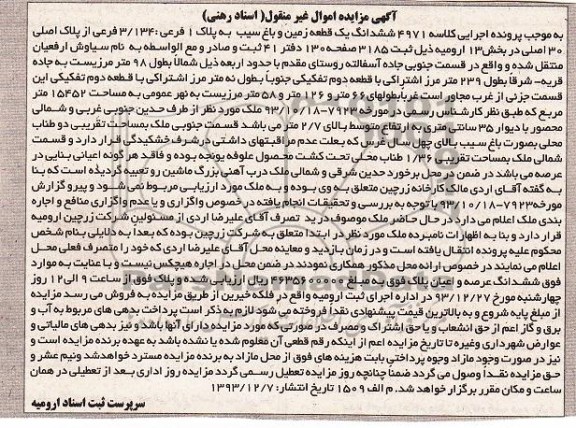 آگهی مزایده اموال غیر منقول( اسناد رهنی)
به موجب پرونده اجرایی کلاسه ۴۹۷۱ ششدانگ یک قطعه زمین و باغ سیب به پلاک ۱ فرعی :۳/۱۳۴ فرعی از پلاک اصلی
۳۰ اصلی در بخش۱۳ ارومیه ذیل ثبت ۳۱۸۵ صفحه ۱۳۰ دفتر ۴۱ ثبت و صادر و مع الواسطه به نام سیاوش ارفعیان
منتقل شده و واقع در قسمت جنوبی جاده آسفالته روستای مقدم با حدود اربعه ذیل شمالاً بطول ۹۸ متر مرزیست به جاده
قریه- شرقاً بطول ۲۳۹ متر مرز اشتراکی با قطعه دوم تفکیکی جنوباً بطول نه متر مرز اشتراکی با قطعه دوم تفکیکی این
قسمت جزئی از غرب مجاور است غرباً بطولهای ۶۶ متر و ۱۲۶ متر و ۵۸ متر مرزیست به نهر عمومی به مساحت ۱۵۴۵۲ متر
مربع که طبق نظر کارشناس رسمی در مورخه ۷۹۲۳-۹۳/۱۰/۱۸ ملک مورد نظر از طرف حدین جنوبی غربی و شمالی
محصور با دیوار ۳۵ سانتی متری به ارتفاع متوسط بالای ۲/۷ متر می باشد قسمت جنوبی ملک بمساحت تقریبی دو طناب
محلی بصورت باغ سیب بالای چهل سال غرس که بعلت عدم مراقبتهای داشتی در شرف خشکیدگی قرار دارد و قسمت
شمالی ملک بمساحت تقریبی ۱/۳۶ طناب محلی تحت کشت محصول علوفه یونجه بوده و فاقد هر گونه اعیانی بنایی در
عرصه می باشد در ضمن در محل برخورد حدین شرقی و شمالی ملک درب آهنی بزرگ ماشین رو تعبیه گردیده است که بنا
به گفته آقای اردی مالک کارخانه زرچین متعلق به وی بوده و به ملک مورد ارزیابی مربوط نمی شود و پیرو گزارش
مورخه ۷۹۲۳-۹۳/۱۰/۱۸ با توجه به بررسی و تحقیقات انجام یافته در خصوص واگزاری و یا عدم واگزاری منافع و اجاره
بندی ملک اعلام می دارد در حال حاضر ملک موصوف در ید تصرف آقای علیرضا اردی از مسئولین شرکت زرچین ارومیه
قرار دارد و بنا به اظهارات نامبرده ملک مورد نظر در ابتدا متعلق به شرکت زرچین بوده که بعداً به دلایلی بنام شخص
محکوم علیه پرونده انتقال یافته است و در زمان بازدید و معاینه محل آقای علیرضا اردی که خود را متصرف فعلی محل
اعلام می نمایند در خصوص ارائه محل مذکور همکاری نمودند در ضمن محل در اجاره هیچکس نیست و با عنایت به موارد
فوق ششدانگ عرصه و اعیان پلاک فوق به مبلغ ریال ارزیابی شده و پلاک فوق از ساعت ۹ الی ۱۲ روز
چهارشنبه مورخ ۹۳/۱۲/۲۷ در اداره اجرای ثبت ارومیه واقع در فلکه خیرین از طریق مزایده به فروش می رسد مزایده
از مبلغ پایه شروع و به بالاترین قیمت پیشنهادی نقداً فروخته می شود لازم به ذکر است پرداخت بدهی های مربوط به آب و
برق و گاز اعم از حق انشعاب و یا حق اشتراک و مصرف در صورتی که مورد مزایده دارای آنها باشد و نیز بدهی های مالیاتی و
عوارض شهرداری و غیره تا تاریخ مزایده اعم از اینکه رقم قطعی آن معلوم شده یا نشده باشد به عهده برنده مزایده است و
نیز در صورت وجود مازاد وجوه پرداختی بابت هزینه های فوق از محل مازاد به برنده مزایده مسترد خواهد شد ونیم عشر و
حق مزایده نقداً وصول می گردد ضمناً چنانچه روز مزایده تعطیل رسمی گردد مزایده روز اداری بعد از تعطیلی در همان
ساعت و مکان مقرر برگزار خواهد شد. م الف ۱۵۰۹ تاریخ انتشار: ۱۳۹۳/۱۲/۷
سرپرست ثبت اسناد ارومیه